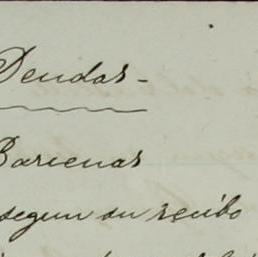 Deudas -
Barcenas
segun su recibo